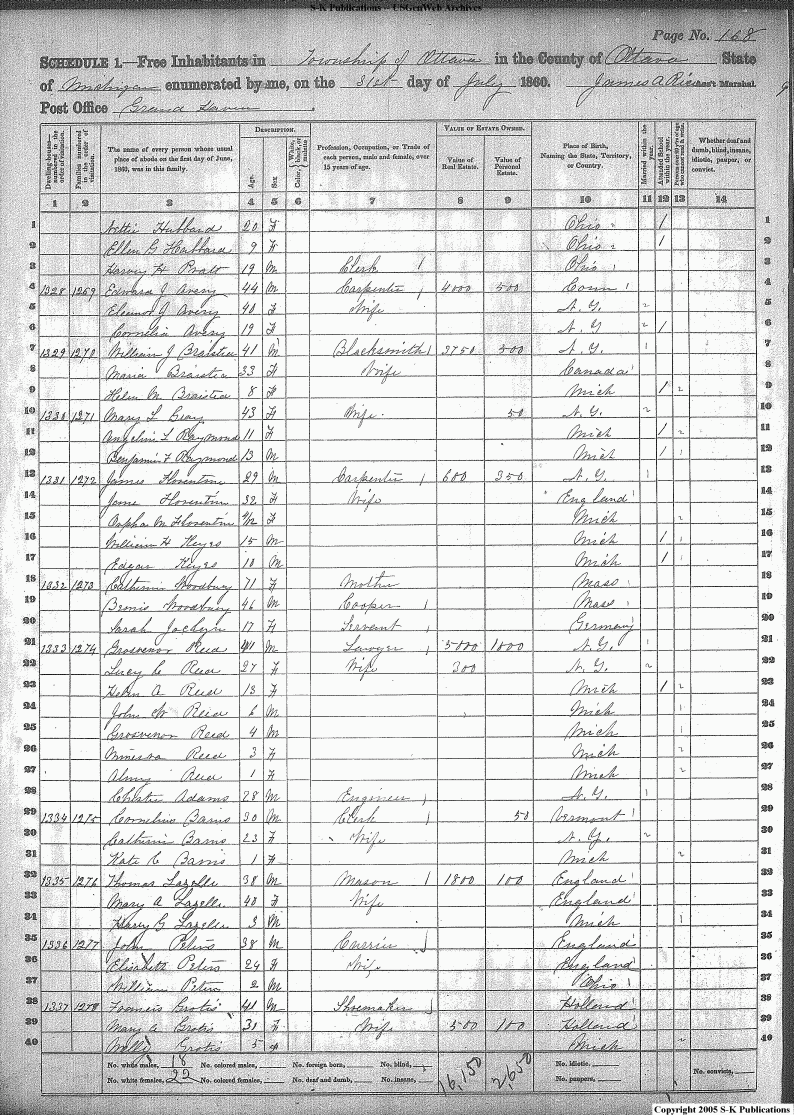 S-K Publications – USGenWeb Archives
Page No. 168
SCHEDULE 1.—Free Inhabitants in Township of Ottawa in the County of Ottawa State
of Michigan enumerated by me, on the 31st day of July 1860. James A Rice Ass't Marshal.
Post Office Grand Haven
Dwelling-houses— numbered in the order of visitation.
Families numbered in the order of visitation.
The name of every person whose usual place of abode on the first day of June, 1860, was in this family.
DESCRIPTION.
Age.
Sex
Color, White, black, or mulatto
Profession, Occupation, or Trade of each person, male and female, over 15 years of age.
VALUE OF ESTATE OWNED.
Value of Real Estate.
Value of Personal Estate.
Place of Birth, Naming the State, Territory, or Country.
Married within the year.
Attended School within the year.
Persons over 20 y'rs of age who cannot read & write.
Whether deaf and dumb, blind, insane, idiotic, pauper, or convict.
1 2 3 4 5 6 7 8 9 10 11 12 13 14
1 Nettie Hubbard 20 F Ohio / 1
2 Ellen G Hubbard 9 F Ohio / 2
3 Harvey H Pratt 19 M Clerk Ohio 3
4 1328 1269 Edward J Avery 44 M Carpenter 4000 500 Conn 4
5 Eleanor J Avery 40 F Wife N.Y. 5
6 Cornelia Avery 19 F N.Y / 6
7 1329 1270 William J Braisted 41 M Blacksmith 3750 500 N.Y. 7
8 Maria Braisted 33 F Wife Canada 8
9 Helen M Braisted 8 F Mich / 9
10 1330 1271 Mary L 43 F Wife 50 N.Y. 10
11 Angeline L Raymond 11 F Mich / 11
12 Benjamin F Raymond 13 M Mich / 12
13 1331 1272 James Florentine 29 M Carpenter 600 350 N.Y. 13
14 Jane Florentine 32 F Wife England 14
15 Orpha M Florentine F Mich 15
16 William H Keyes 15 M Mich / 16
17 Edgar Keyes 10 M Mich / 17
18 1332 1273 Catherine Woodbury 71 F Mother Mass 18
19 Woodbury 46 M Cooper Mass 19
20 Sarah 17 F Servant Germany 20
21 1333 1274 Grosvenor Reed 41 M Lawyer 5000 1000 N.Y. 21
22 Lucy C Reed 27 F Wife 300 N.Y. 22
23 Helen A Reed 13 F Mich / 23
24 John W Reed 6 M Mich 24
25 Grosvenor Reed 4 M Mich 25
26 Minerva Reed 3 F Mich 26
27 Reed 1 F Mich 27
28 Adams 28 M Engineer N.Y. 28
29 1334 1275 Cornelius Barns 30 M Clerk 50 Vermont 29
30 Catherine Barns 23 F Wife N.Y. 30
31 Kate C Barns 1 F Mich 31
32 1335 1276 Thomas Lazelle 38 M Mason 1800 100 England 32
33 Mary A Lazelle 40 F Wife England 33
34 Harry G Lazelle 3 M Mich 34
35 1336 1277 John Peters 38 M Currier England 35
36 Elisabeth Peters 24 F Wife England 36
37 William Peters 2 M Ohio 37
38 1337 1278 Francis Grotis 41 M Shoemaker Holland 38
39 Mary A Grotis 31 F Wife 500 100 Holland 39
40 Grotis 5 Mich 40
No. white males, 18 No. colored males, No. foreign born, No. blind, 16,150 2,650 No. idiotic, No. convicts,
No. white females, 22 No. colored females, No. deaf and dumb, No. insane, No. paupers,
Copyright 2005 S-K Publications